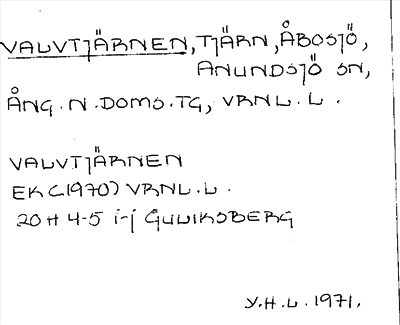 VALVTJÄRNEN, TJÄRN, ÅBOSJÖ,
ANUNDSJÖ SN,
ÅNG. N. DOMS. TG, VRNL. L.
VALVTJÄRNEN
EK C(1970) VRNL. L.
20H 4-5 i-j GULIKSBERG
Y.H.L. 1971.